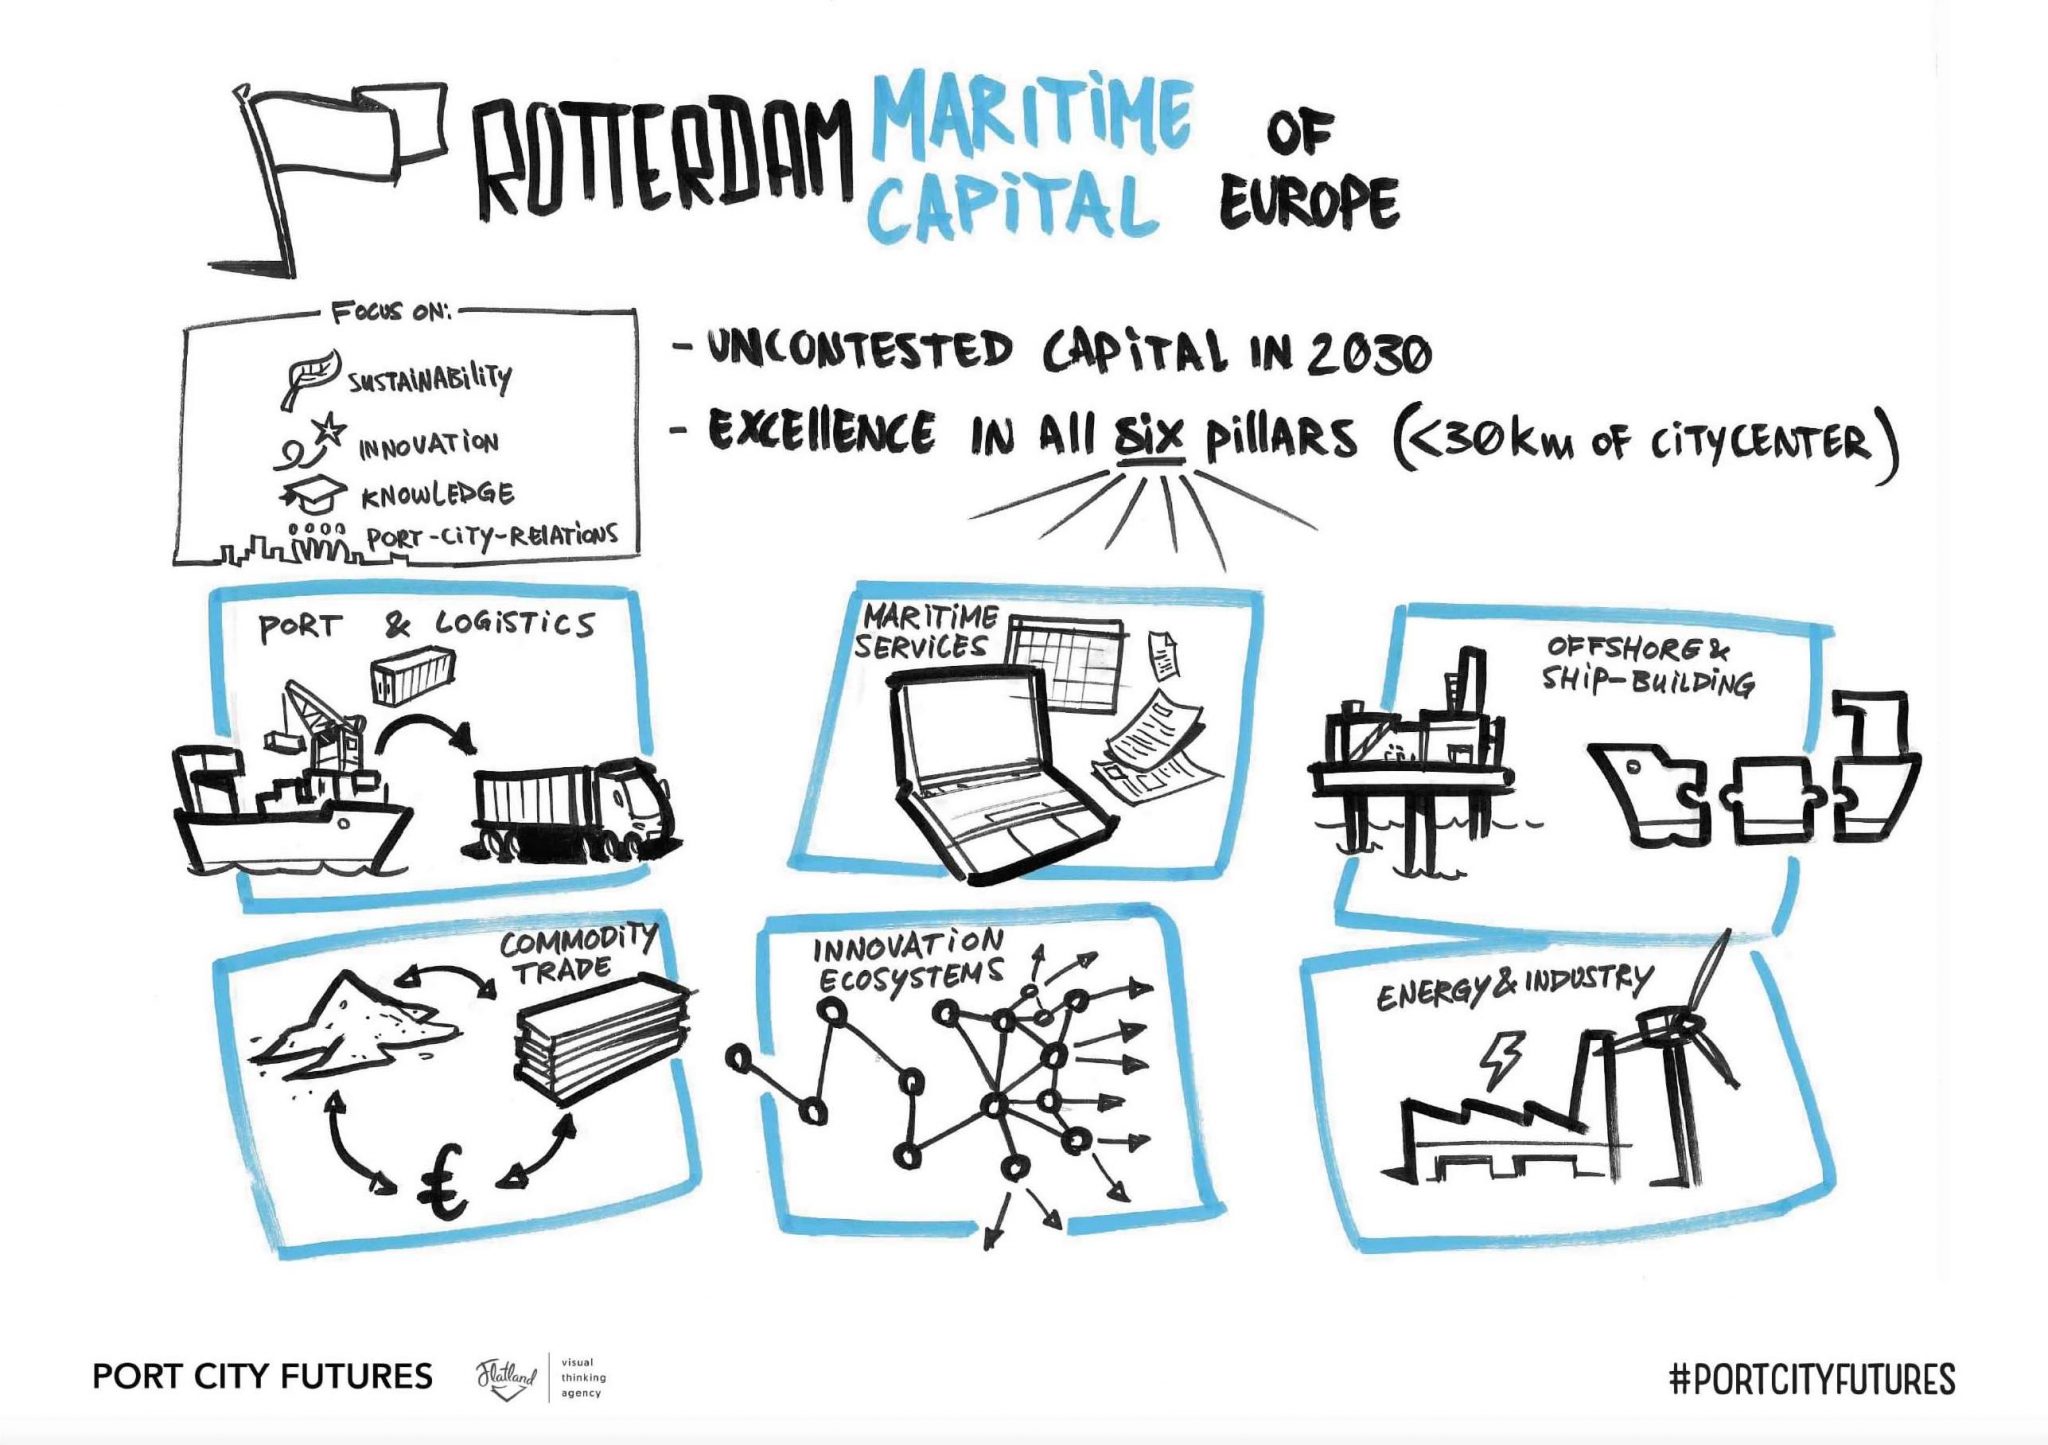 ROTTERDAM MARITIME CAPITAL OF EUROPE
FOCUS ON:
SUSTAINABILITY
INNOVATION
KNOWLEDGE
PORT-CITY-RELATIONS
- UNCONTESTED CAPITAL IN 2030
- EXCELLENCE IN ALL SIX PILLARS (<30km OF CITYCENTER)
PORT & LOGISTICS
MARITIME
SERVICES
OFFSHORE &
SHIP-BUILDING
COMMODITY
TRADE
€
INNOVATION
ECOSYSTEMS
ENERGY & INDUSTRY
PORT CITY FUTURES
Flatland
visual
thinking
agency
#PORTCITYFUTURES